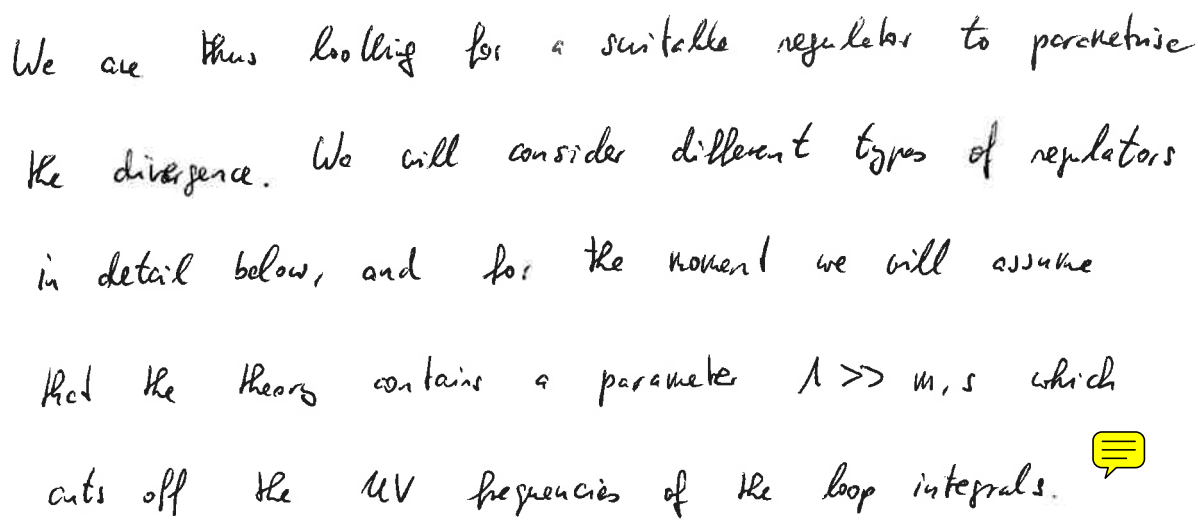 We are thus looking for a suitable regulator to parametrise
the divergence. We will consider different types of regulators
in detail below, and for the moment we will assume
that the theory contains a parameter Λ >> m, s which
cuts off the UV frequencies of the loop integrals.